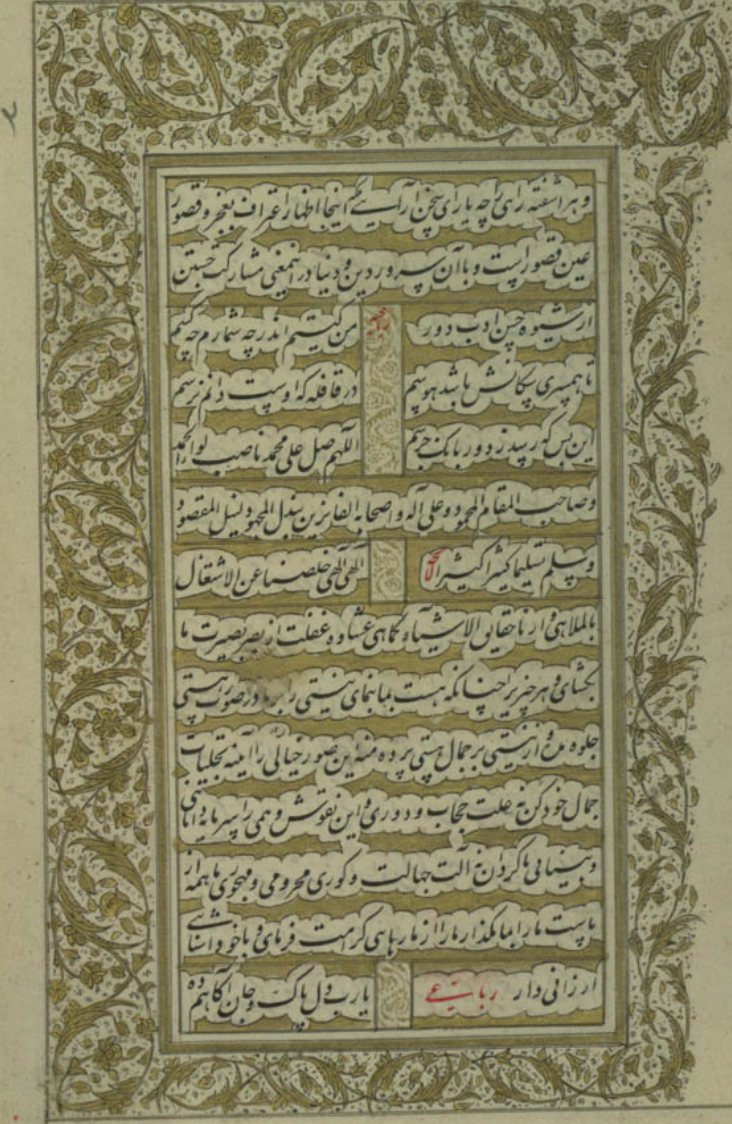 و هر آشفته رای را چه یارای سخن آرایی اینجا اظهار اعتراف بعجز و قصور
عین قصور است و با آن سرور دین و دنیا در اینمعنی مشارکت جستن
از شیوه حسن ادب دور رباعیه من کیستم اندر چه شمارم چه کسم
تا همسری سکانش باشد هوسم در قافله که اوست دانم نرسم
این بس که رسد ز دور بانک جرسم اللهم صل علی محمد ناصب لواء الحمد
و صاحب المقام المحمود و علی آله و اصحابه الفایزین ببذل المجهود لنیل المقصود
و سلم تسلیما کثیرا کثیرا الهی الهی خلصنا عن الاشتغال
بالملاهی و ارنا حقایق الاشیاء کما هی غشاوه غفلت از بصر بصیرت ما
بکشای و هر چیز را چنانکه هست بما بنمای نیستی را بر ما در صورت هستی
جلوه مده و از نیستی بر جمال هستی پرده منه این صور خیالی را آینه تجلیات
جمال خود کن نه علت حجاب و دوری و این نقوش وهمی را سرمایه دانایی
و بینایی ما کردان نه آلت جهالت و کوری محرومی و مهجوری ما همه از
ماست ما را بما مکذار ما را از ما رهایی کرامت فرمای و با خود آشنایی
ارزانی دار رباعی یارب دل پاک و جان آکاهم ده